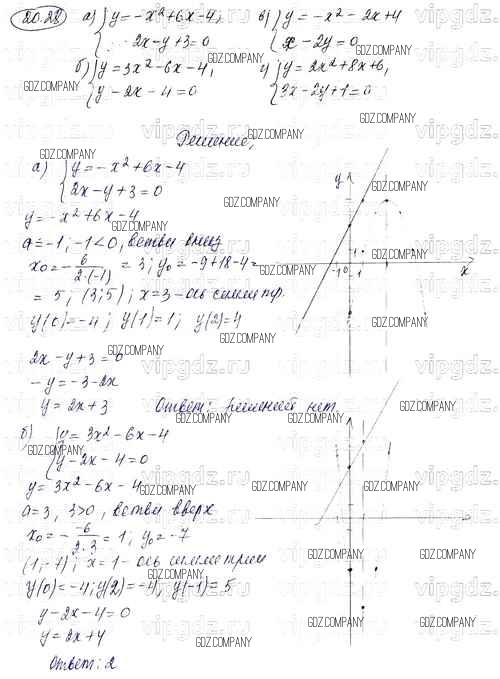 20.28 а) { y = -x² + 6x - 4,   в) { y = -x² - 2x + 4
2x - y + 3 = 0   x - 2y = 0
б) { y = 3x² - 6x - 4,   г) { y = 2x² + 8x + 6,
y - 2x - 4 = 0   3x - 2y + 1 = 0
Решение,
а) { y = -x² + 6x - 4
2x - y + 3 = 0
y = -x² + 6x - 4
a = -1, -1 < 0, ветви вниз
x₀ = - 6/(2·(-1)) = 3; y₀ = -9 + 18 - 4 =
= 5; (3; 5); x = 3 - ось симметр.
y(0) = -4; y(1) = 1; y(2) = 4
2x - y + 3 = 0
-y = -3 - 2x
y = 2x + 3   Ответ: решений нет
б) { y = 3x² - 6x - 4
y - 2x - 4 = 0
y = 3x² - 6x - 4
a = 3, 3 > 0, ветви вверх
x₀ = - -6/(2·3) = 1, y₀ = -7
(1; -7); x = 1 - ось симметрии
y(0) = -4; y(2) = -4, y(-1) = 5
y - 2x - 4 = 0
y = 2x + 4
Ответ: 2
y
-1 0 1
x
GDZ.COMPANY
vipgdz.ru